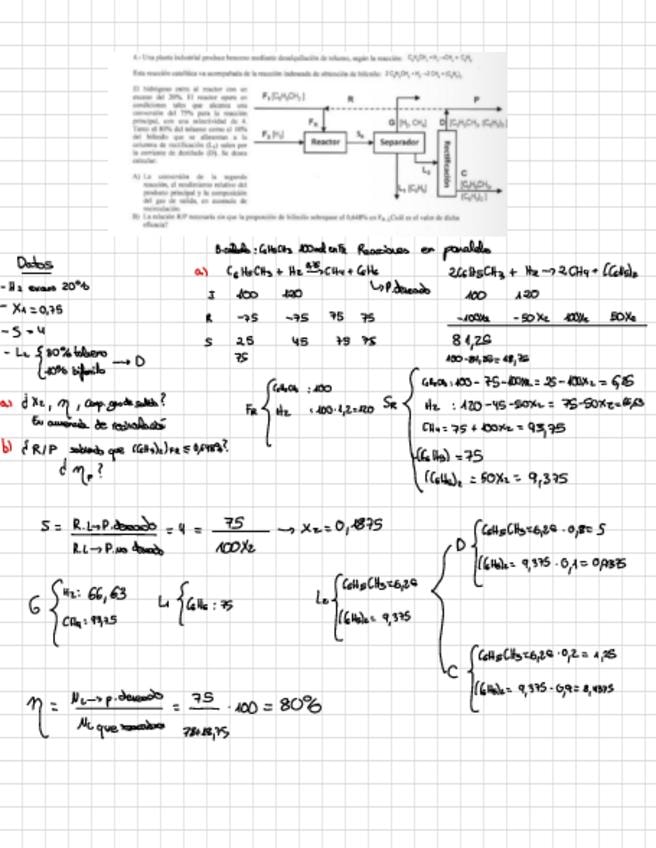 4.- Una planta industrial produce benceno mediante desalquilación de tolueno, según la reacción: C₆H₅CH₃ + H₂ → CH₄ + C₆H₆
Esta reacción catalítica va acompañada de la reacción indeseada de obtención de bifenilo: 2 C₆H₅CH₃ + H₂ → 2 CH₄ + (C₆H₅)₂
El hidrógeno entra al reactor con un
exceso del 20%. El reactor opera en
condiciones tales que alcanza una
conversión del 75% para la reacción
principal, con una selectividad de 4.
Tanto el 80% del tolueno como el 10%
del bifenilo que se alimentan a la
columna de rectificación (L₂) salen por
la corriente de destilado (D). Se desea
calcular:
A) La conversión de la segunda
reacción, el rendimiento relativo del
producto principal y la composición
del gas de salida, en ausencia de
recirculación.
B) La relación R/P necesaria sin que la proporción de bifenilo sobrepase el 0,648% en Fᵣ. ¿Cuál es el valor de dicha
eficacia?
F₁ [C₆H₅CH₃]
R
P
Fᵣ
G [H₂, CH₄]
D [C₆H₅CH₃, (C₆H₅)₂]
F₂ [H₂]
Reactor
Sᵣ
Separador
Rectificación
L₂
L₁ [C₆H₆]
C
[C₆H₅CH₃
(C₆H₅)₂]
C₆H₅CH₃ 100 mol en Fᵣ Reacciones en paralelo
Datos
- H₂ exceso 20%
- X₁ = 0,75
- S = 4
- L₂ { 80% tolueno
10% bifenilo → D
a) ¿X₂, η, comp. gas de salida?
En ausencia de recirculación
b) ¿R/P sabiendo que (C₆H₅)₂ Fᵣ ≤ 0,648%?
¿ηₚ?
a) C₆H₅CH₃ + H₂ → CH₄ + C₆H₆
↳ P. deseado
I 100 120
R -75 -75 75 75
S 25 45 75 75
75
2C₆H₅CH₃ + H₂ → 2CH₄ + (C₆H₅)₂
100 120
-100X₂ -50X₂ 100X₂ 50X₂
81,25
100-81,25 = 18,75
Fᵣ { C₆H₅CH₃ : 100
H₂ : 100·1,2=120
Sᵣ { C₆H₅CH₃ : 100 - 75 - 100X₂ = 25 - 100X₂ = 6,25
H₂ : 120 - 45 - 50X₂ = 75 - 50X₂ = 66,63
CH₄ = 75 + 100X₂ = 93,75
(C₆H₆) = 75
(C₆H₅)₂ = 50X₂ = 9,375
S = R.L → P. deseado / R.L → P. no deseado = 4 = 75 / 100X₂ → X₂ = 0,1875
G { H₂: 66,63
CH₄ : 93,75
L₁ { C₆H₆ : 75
L₂ { C₆H₅CH₃ = 6,25
(C₆H₅)₂ = 9,375
D { C₆H₅CH₃ = 6,25 · 0,8 = 5
(C₆H₅)₂ = 9,375 · 0,1 = 0,9375
C { C₆H₅CH₃ = 6,25 · 0,2 = 1,25
(C₆H₅)₂ = 9,375 · 0,9 = 8,4375
η = N_L → p. deseado / N_L que reacciona = 75 / 75+18,75 · 100 = 80%